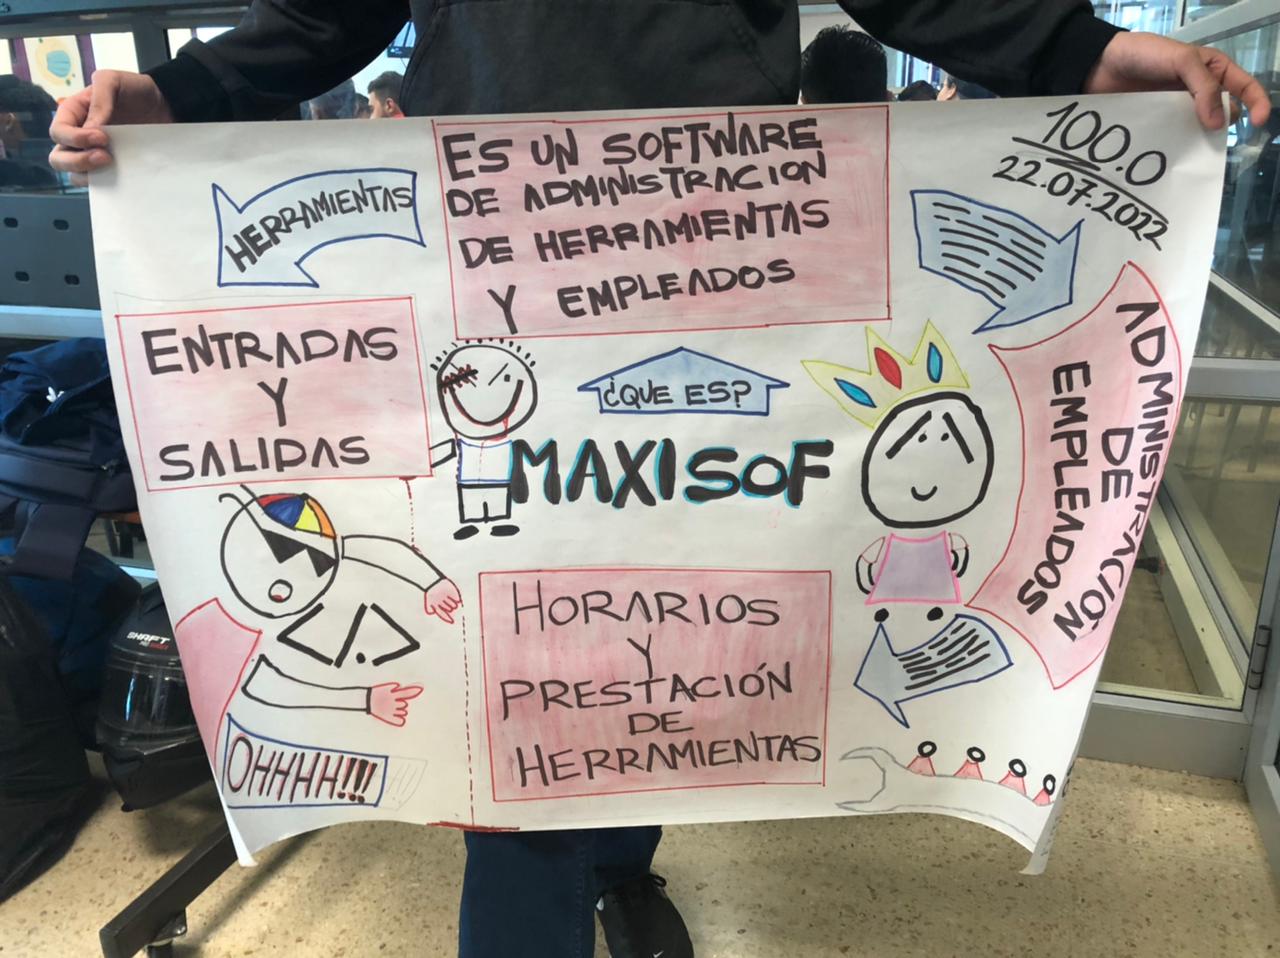 ES UN SOFTWARE
DE ADMINISTRACION
DE HERRAMIENTAS
Y EMPLEADOS
100.0
22.07.2022
HERRAMIENTAS
ENTRADAS
Y
SALIDAS
¿QUE ES?
MAXISOF
ADMINISTRACIÓN
DE
EMPLEADOS
HORARIOS
Y
PRESTACIÓN
DE
HERRAMIENTAS
OHHHH!!!
SHAFT